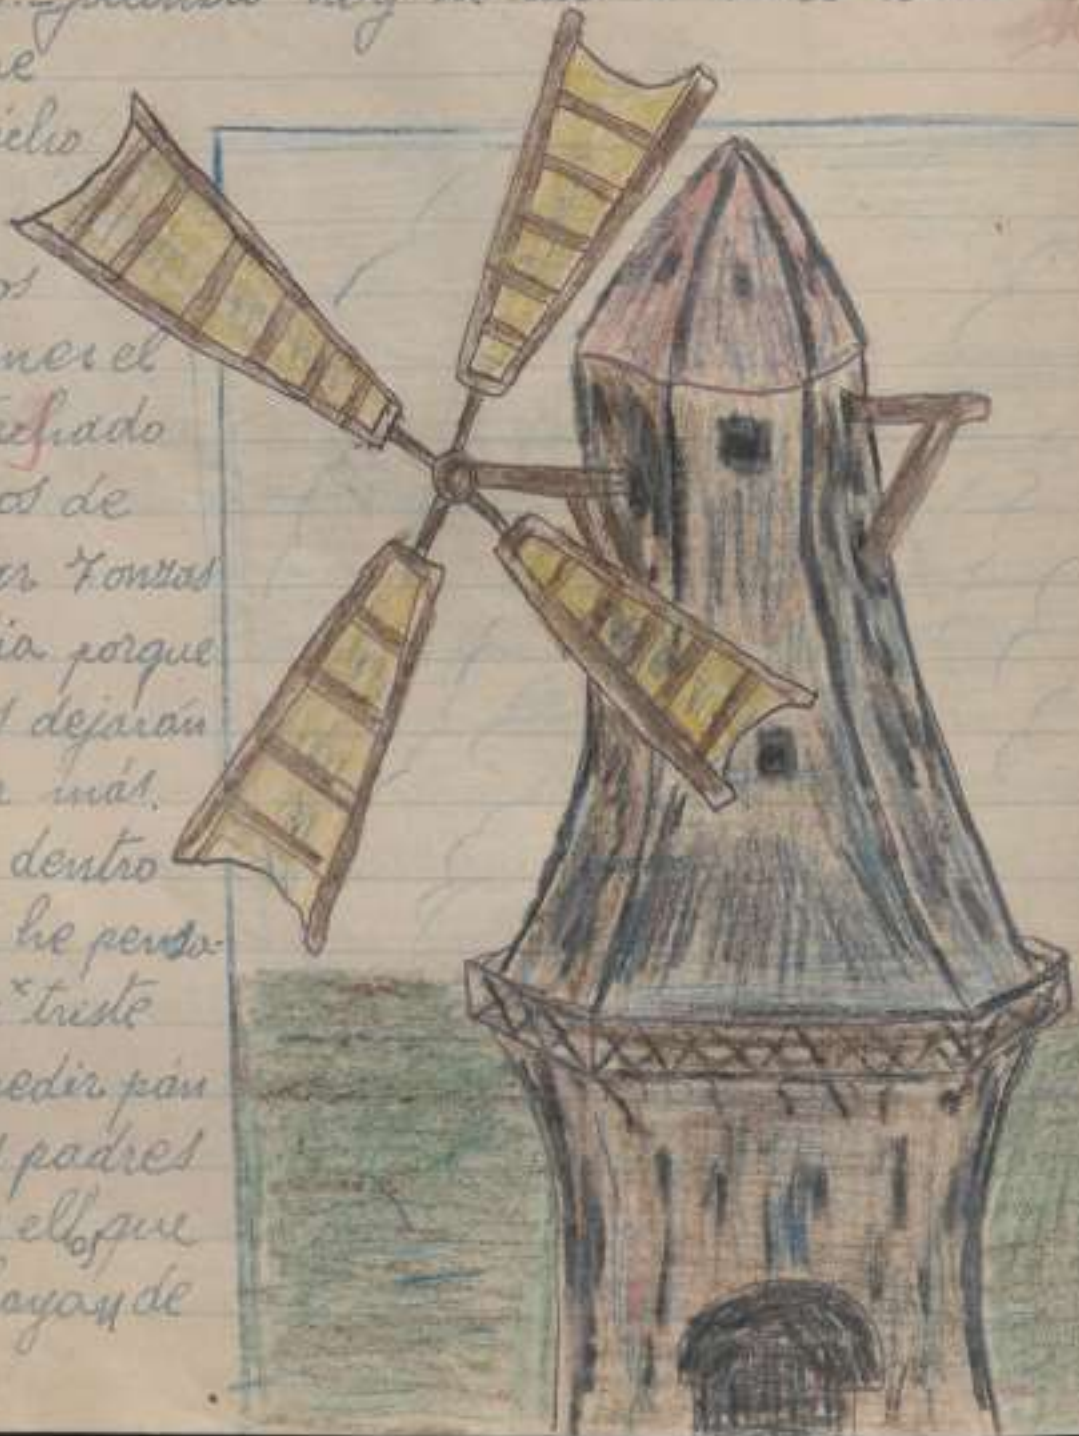 hoy
elio
os
ner el
hado
os de
ar Tontas
ia porque
s dejarán
r más.
dentro
he pensa-
triste
pedir pán
s padres
ellos que
hayan de